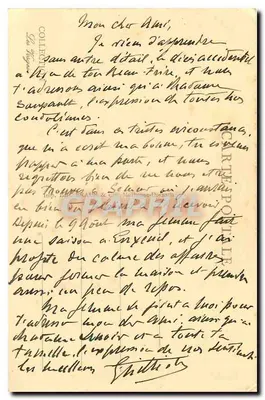 Mon cher Ami,
Je viens d'apprendre
sans autre détail, le décès accidentel
à de ton Beau Frère, et nous
t'adressons ainsi qu'à Madame
l'expression de toutes nos
condoléances.
C'est dans ces tristes circonstances,
que m'a écrit ma bonne, tu es venu
frapper à ma porte, et nous
regrettons bien de ne nous être
pas trouvés à
en bien
Depuis le 9 Août ma femme fait
une saison à Luxeuil, et j'ai
profité du calme des affaires
pour fermer la maison et prendre
aussi un peu de repos.
Ma femme se joint à moi pour
t'adresser mon cher ami, ainsi qu'à
Madame et à toute ta
famille, l'expression de nos sentiments
les meilleurs
CARTE POSTALE
COLLECTION
Cparama